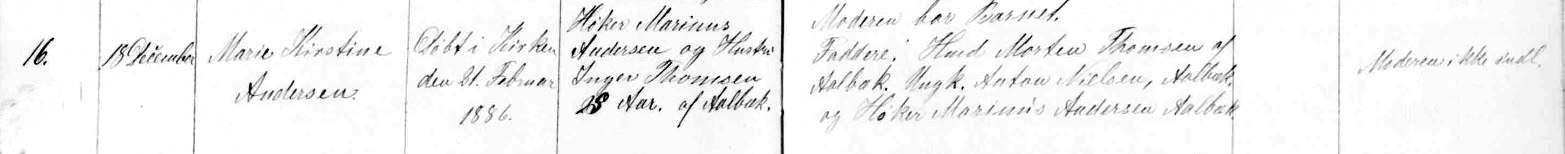 16.
18 December
Marie Kirstine
Andersen.
Døbt i Kirken
den 21. Februar
1886.
Høker Marinus
Andersen og Hustru
Inger Thomsen
28 Aar. af Aalbæk.
Moderen bar Barnet.
Faddere: Hmd Morten Thomsen af
Aalbæk. Ungk. Anton Nielsen, Aalbæk.
og Høker Marinus Andersen Aalbæk
Moderen ikke indl.